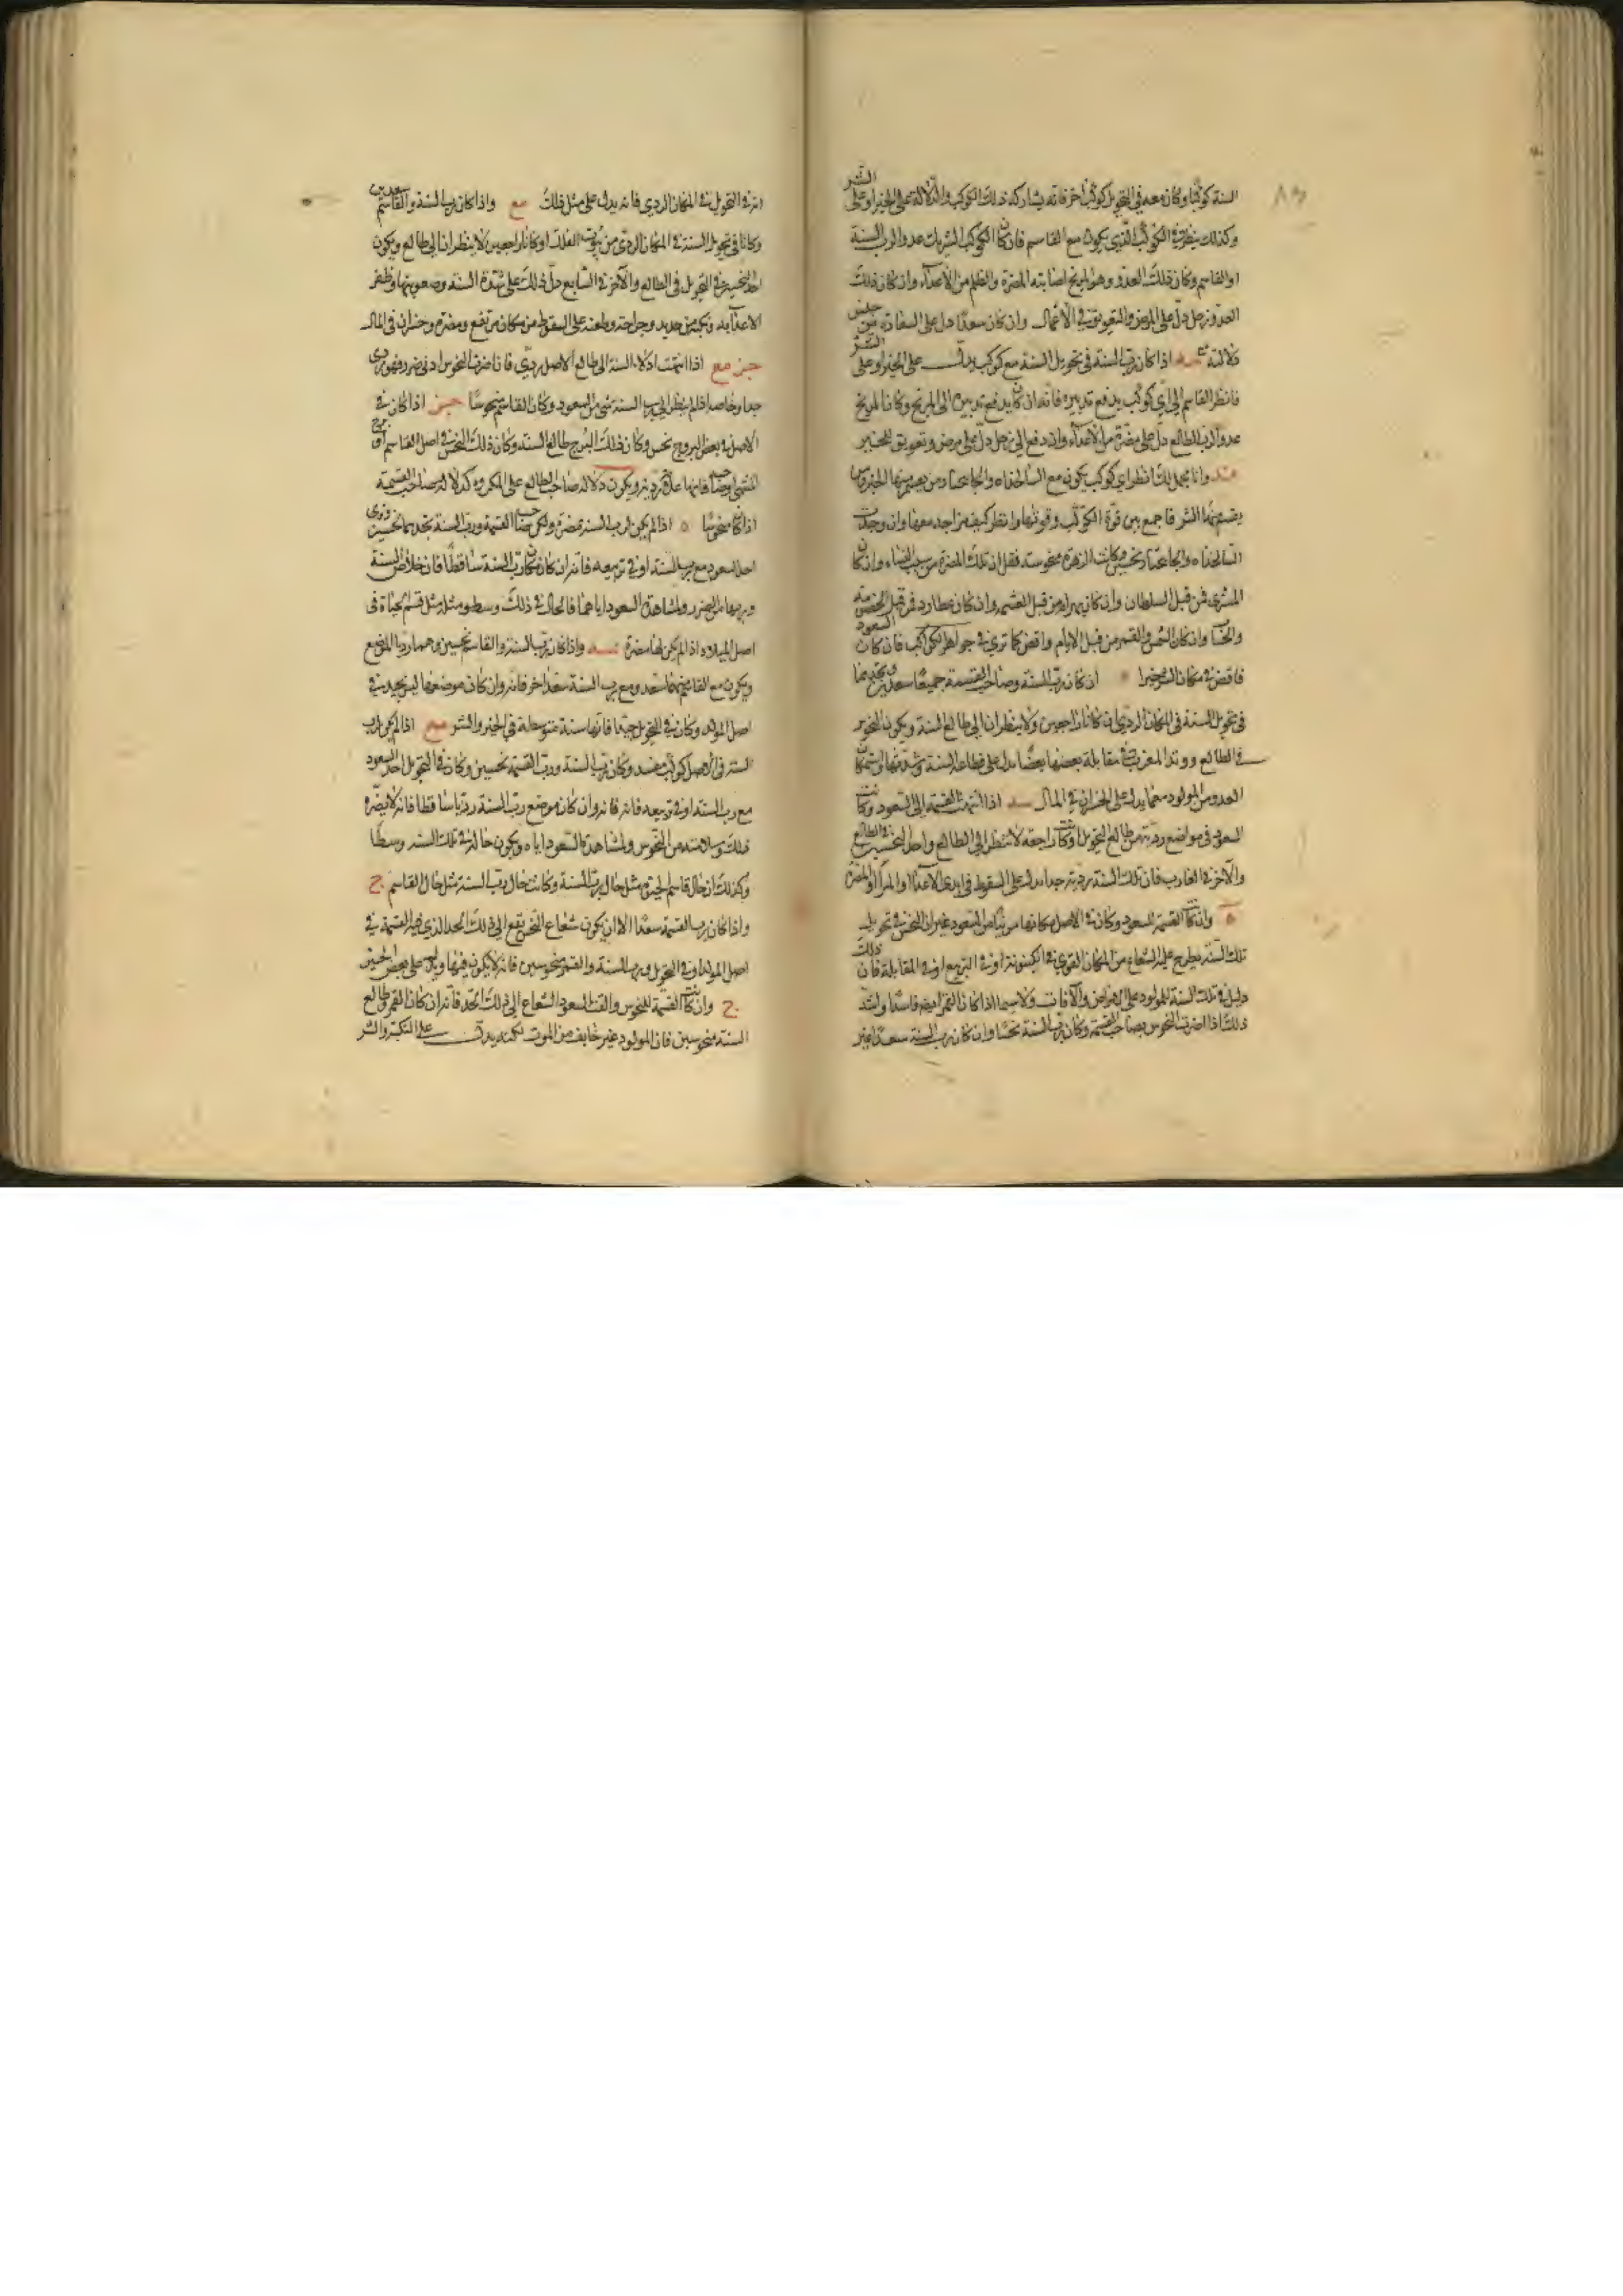 السنة كوكبا وكان معه في التحويل كوكب آخر فانه يشاركه ذلك الكوكب والدلالة على الخير او على الشر
وكذلك ينظر في الكوكب الذي يكون مع القاسم فان كان الكوكب الشريك عدوا لرب السنة
او القاسم وكان ذلك العدو وهو المريخ اصابته المضرة والظلم من الاعداء وان كان ذلك
العدو زحل دل على المرض والتعويق في الاعمال وان كان سعدا دل على السعادة من جنس
دلالته اذا كان رب السنة في تحويل السنة مع كوكب يدل على الخير او على الشر
فانظر القاسم الى اي كوكب يدفع تدبيره فانه ان كان يدفع تدبيره الى المريخ وكان المريخ
عدوا لرب الطالع دل على مضرة من الاعداء وان دفع الى زحل دل على مرض وتعويق للخير
وانا مجمل لك انظر اي كوكب يكون مع السالخداه والجانبختار ومن يصير منهما الخير ومن
يصير منهما الشر فاجمع بين قوة الكوكب وقوتهما وانظر كيف مزاجه معهما وان وجدت
وكانت الزهرة منحوسة فقل ان تلك المضرة من سبب النساء وان كان
المشتري فمن قبل السلطان وان كان بهرام من قبل الغشم وان كان عطارد فمن قبل الخصومة
وان كان الشمس والقمر من قبل الايام واقض كما ترى في جواهر الكواكب فان كان السعود
فاقض في مكان الشر خيرا اذ كان رب السنة وصاحب القسمة جميعا سعدين تجدهما
في تحويل السنة في المكان الردي او كانا راجعين ولا ينظران الى طالع السنة ويكون النحوس
في الطالع ووتد المغرب في مقابلة بعضها بعضا يدل على فظاعة السنة وشدتها واستمكان
العدو من المولود مما يدل على الخسران في المال اذا انتهت القسمة الى السعود وكانت
السعود في مواضع ردية من طالع التحويل او كانت راجعة لا تنظر الى الطالع واحد النحسين في الطالع
والآخر في الغارب فان تلك السنة ردية جدا يدل على السقوط في ايدي الاعداء والمضرة
وان كانت القسمة للسعود وكان في الاصل مكانها من السعود غير ان النحس في تحويل
تلك السنة يطرح عليه الشعاع من المكان القوي في الكينونة او في التربيع او في المقابلة فان ذلك
دليل في تلك السنة للمولود على الامراض والآفات ولا سيما اذا كان القمر ايضا فاسدا واشد
ذلك اذا اضرت النحوس بصاحب القسمة وكان رب السنة نحسا وان كان رب السنة سعدا غير
انه في التحويل في المكان الردي فانه يدل على مثل ذلك مع واذا كان رب السنة والقاسم سعدين
وكانا في تحويل السنة في المكان الردي من بيوت الفلك او كانا راجعين لا ينظران الى طالع ويكون
احد النحسين في التحويل في الطالع والآخر في السابع دل ذلك على شدة السنة وصعوبتها وظفر
الاعداء به ونكبة من حديد وجراحة وطعنة على السقوط من مكان مرتفع ومضرة وخسران في المال
اذا انتهت ادلاء السنة الى طالع الاصل بردي فان اضرت النحوس ادنى ضرر فهو ردي
جدا وخاصة اذا لم ينظر الى رب السنة شيء من السعود وكان القاسم منحوسا اذا كان في
الاصل في بعض البروج نحس وكان ذلك البرج طالع السنة وكان ذلك النحس في اصل القاسم او برج
المنتهى ايضا فانها علامة ردية ويكون دلالة صاحب الطالع على المكروه كدلالة صاحب القسمة
اذا كان منحوسا ه اذا لم يكن لرب السنة مضرة ولكن صاحب القسمة ورب السنة تجدهما نحسين وترى
احد السعود مع رب السنة او في تربيعه فانه ان كان مكان رب السنة ساقطا فان خلاص السنة
وربها من الضرر ولمشاهدة السعود اياهما فالحال في ذلك وسط ومثله مثل قسم الحياة في
اصل الميلاد اذا لم يكن لها مضرة واذا كان رب السنة والقاسم نحسين وهما رديا الموضع
ويكون مع القاسم منهما سعد ومع رب السنة سعد آخر فانه وان كان موضعهما ليس بجيد في
اصل المولد وكان في التحويل جيدا فانها سنة متوسطة في الخير والشر مع اذا لم يكن لرب
السنة في الاصل كوكب مفسد وكان رب السنة ورب القسمة نحسين وكان في التحويل احد السعود
مع رب السنة او في تربيعه فانه وان كان موضع رب السنة رديا ساقطا فانه لا يضره
ذلك وسلامته من النحوس ولمشاهدة السعود اياه ويكون حاله في تلك السنة وسطا
وكذلك ان حال قاسم الحيوة مثل حال رب السنة وكانت حال رب السنة مثل حال القاسم ج
واذا كان رب القسمة سعدا الا ان يكون شعاع النحس يقع الى ذلك الحد الذي فيه القسمة في
اصل المولد او في التحويل ورب السنة والقمر منحوسين فانه لا يكون فيها ويدل على بعض الخير
ج وان كانت القسمة للنحوس والقت السعود الشعاع الى ذلك الحد فانه ان كان القمر وطالع
السنة منحوسين فان المولود غير خايف من الموت لكنه يدل على النكبة والشر